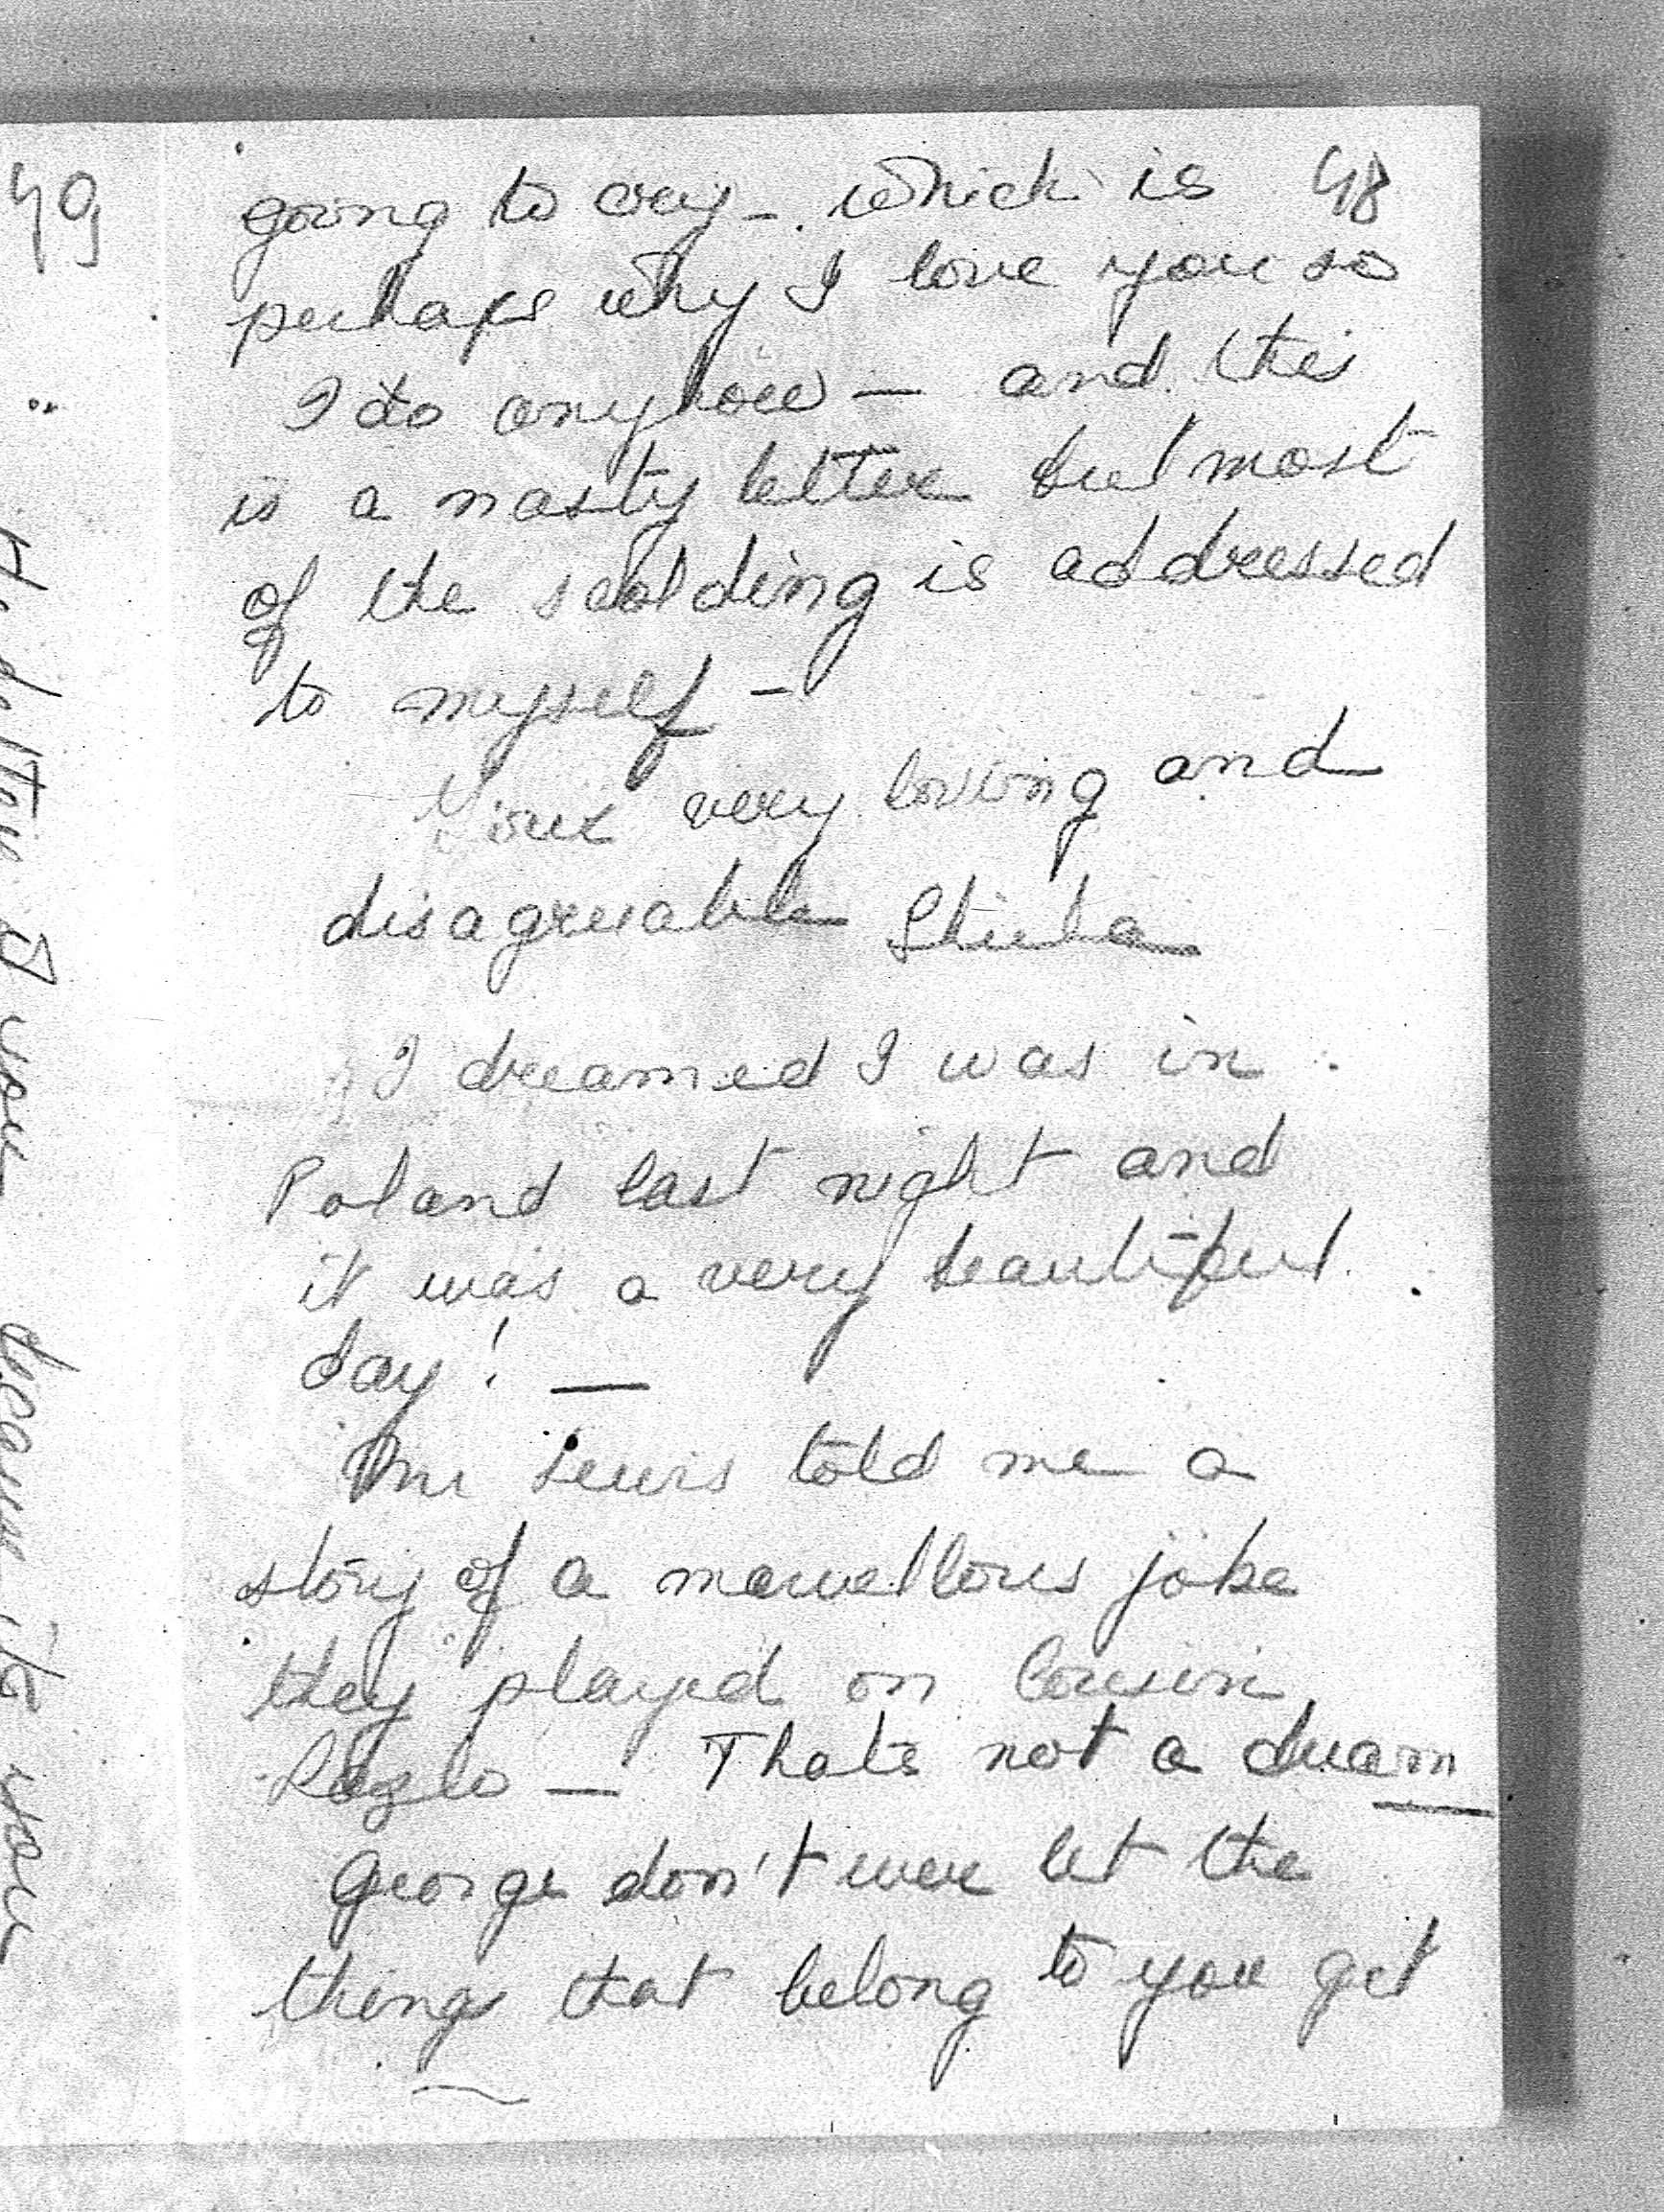 48
going to cry - which is
perhaps why I love you so
I do anyhow — and this
is a nasty letter but most
of the scolding is addressed
to myself -
Your very loving and
disagreeable Shiela
I dreamed I was in
Poland last night and
it was a very beautiful
day! —
Mr Lewis told me a
story of a marvellous joke
they played on Cousin
Lazlo — Thats not a dream
George don't ever let the
things that belong to you get
49